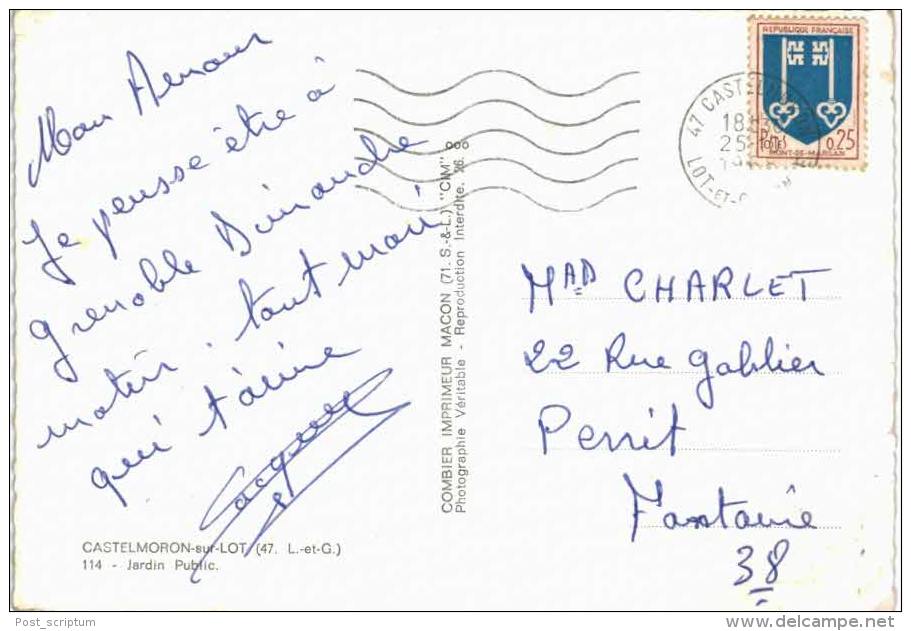 Mon Amour
Je pensse être à
grenoble Dimanche
matin. tout mari
qui t'aime
Jacques
CASTELMORON-sur-LOT (47. L.-et-G.)
114 - Jardin Public.
COMBIER IMPRIMEUR MACON (71. S.-&-L.) "CIM"
Photographie Véritable - Reproduction Interdite.
REPUBLIQUE FRANÇAISE
POSTES
0,25
MONT-DE-MARSAN
47 CASTELMORON
18H30
25-
19
LOT-ET-G
MAD CHARLET
22 Rue gablier
Perrit
Fontanie
38
Post_scriptum
www.delcampe.net